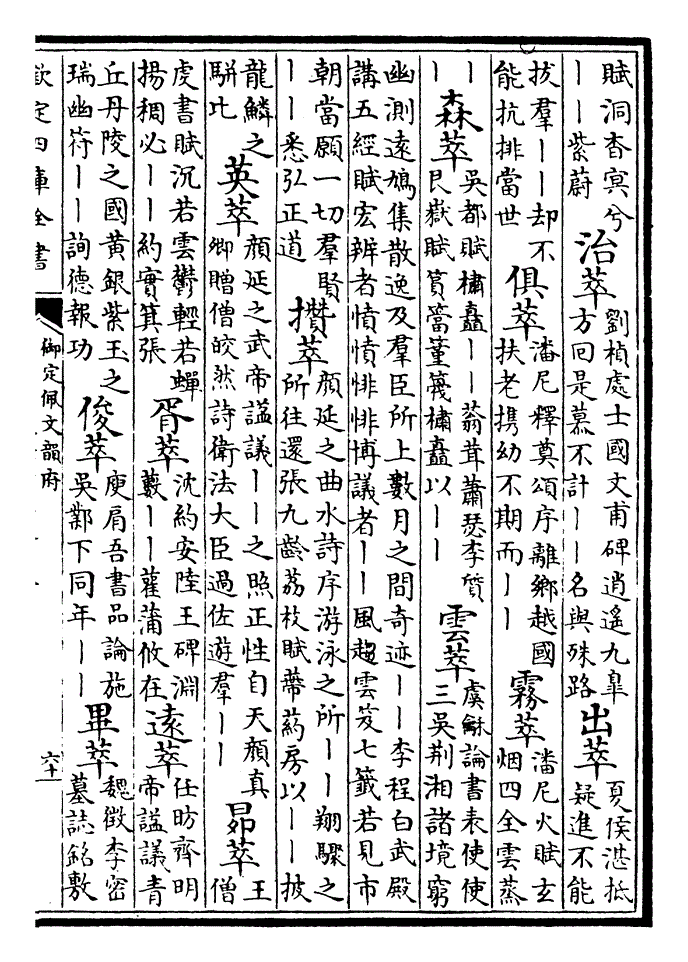 賦洞杳冥兮
丨丨紫蔚
治萃
劉楨處士國文甫碑逍遙九臯
方回是慕不計丨丨名與殊路
出萃
夏侯湛抵
疑進不能
拔羣丨丨却不
能抗排當世
俱萃
潘尼釋奠頌序離鄉越國
扶老携幼不期而丨丨
霧萃
潘尼火賦玄
烟四全雲蒸
丨
丨
森萃
吳都賦橚矗丨丨蓊茸蕭瑟李質
艮嶽賦篔簹篁䈽橚矗以丨丨
雲萃
虞龢論書表使使
三吳荆湘諸境窮
幽測遠鳩集散逸及羣臣所上數月之間奇迹丨丨李程白武殿
講五經賦宏辨者憤憤悱悱博議者丨丨風趨雲笈七籤若見市
朝當願一切羣賢
丨丨悉弘正道
攢萃
顔延之曲水詩序游泳之所丨丨翔驟之
所往還張九齡荔枝賦蔕葯房以丨丨披
龍鱗之
駢比
英萃
顔延之武帝謚議丨丨之照正性自天顔真
卿贈僧皎然詩衛法大臣過佐遊羣丨丨
昴萃
王
僧
虔書賦沉若雲鬱輕若蟬
揚稠必丨丨約實箕張
胥萃
沈約安陸王碑淵
藪丨丨雚蒲攸在
遠萃
任昉齊明
帝謚議青
丘丹陵之國黄銀紫玉之
瑞幽符丨丨詢德報功
俊萃
庾肩吾書品論施
吳鄴下同年丨丨
畢萃
魏徵李密
墓誌銘敷
欽定四庫全書
御定佩文韻府
六十